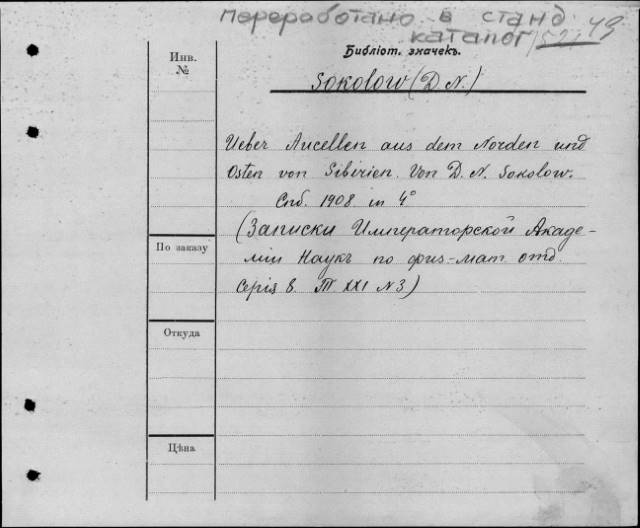 переработано в станд
каталог 49
Библіот. значекъ.
Инв.
№
Sokolow (D. N.)
Ueber Aucellen aus dem Norden und
Osten von Sibirien. Von D. N. Sokolow.
Спб. 1908 in 4°
(Записки Императорской Акаде-
міи Наукъ по физ-мат. отд.
Серія 8. Т XXI N 3)
По заказу
Откуда
Цѣна